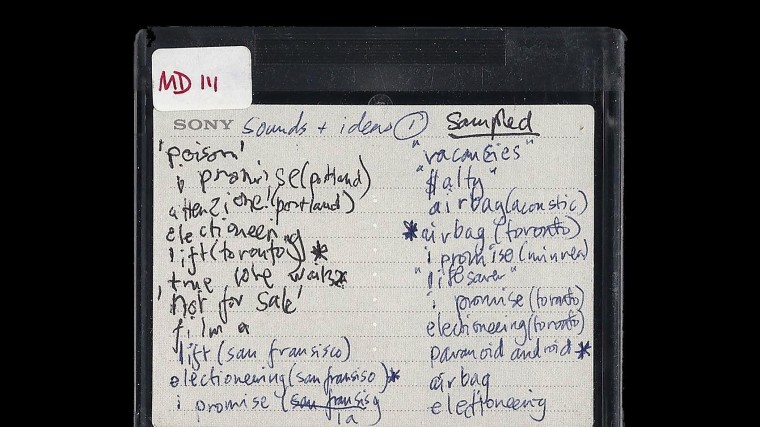 MD 111
SONY sounds + ideas ① Sampled
'poison'
i promise (portland)
attenzione! (portland)
electioneering
lift (toronto) *
true love waits *
'not for sale'
film a
lift (san fransisco)
electioneering (san fransiso) *
i promise (san fransis
la
"vacancies"
"$alty"
airbag (acoustic)
* airbag (toronto)
i promise
"lifesaver"
i promise (toronto)
electioneering (toronto)
paranoid android *
airbag
electioneering